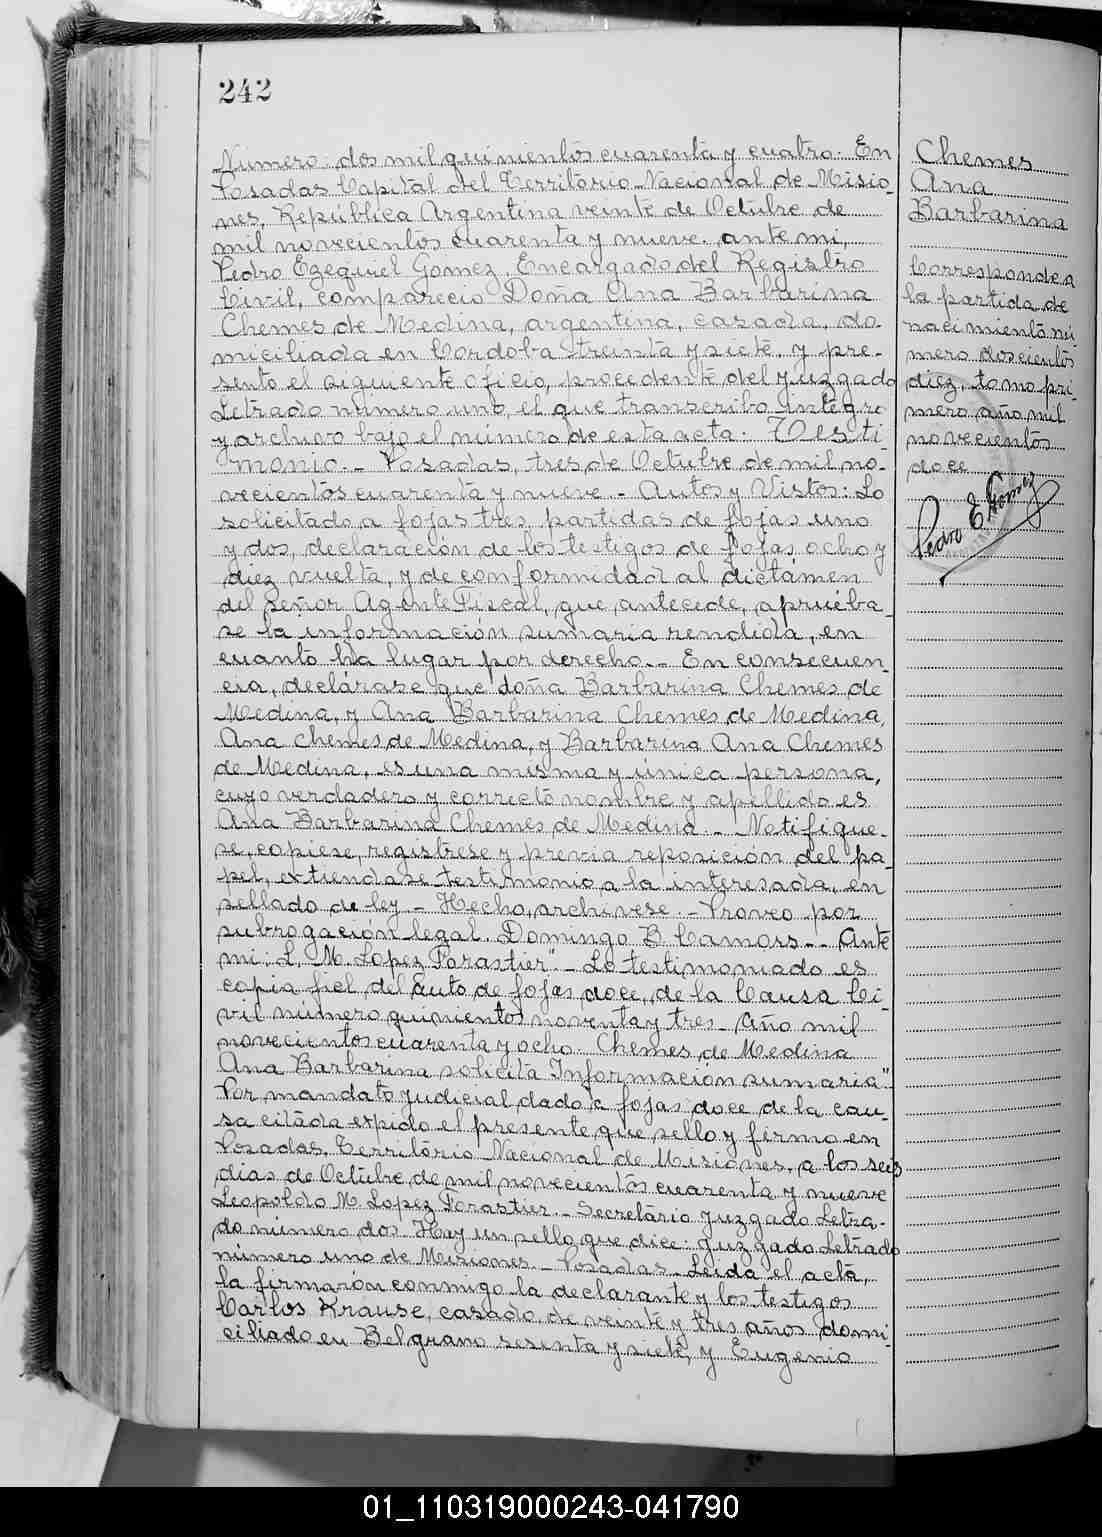 242
Numero: dos mil quinientos cuarenta y cuatro. En
Posadas Capital del Territorio Nacional de Misio_
nes, República Argentina veinte de Octubre de
mil novecientos cuarenta y nueve. ante mi,
Pedro Ezequiel Gomez, Encargado del Registro
Civil, comparecio Doña Ana Barbarina
Chemes de Medina, argentina, casada, do-
miciliada en Cordoba treinta y siete, y pre-
sento el siguiente oficio, procedente del Juzgado
Letrado número uno, el que transcribo integro
y archivo bajo el número de esta acta. Testi
monio._ Posadas, tres de Octubre de mil no-
vecientos cuarenta y nueve.- Autos y Vistos: Lo
solicitado a fojas tres, partidas de fojas uno
y dos, declaración de los testigos de fojas ocho y
diez vuelta, y de conformidad al dictámen
del señor Agente Fiscal, que antecede, apruéba_
se la información sumaria rendida, en
cuanto ha lugar por derecho._ En consecuen_
cia, declárase que doña Barbarina Chemes de
Medina, y Ana Barbarina Chemes de Medina,
Ana Chemes de Medina, y Barbarina Ana Chemes
de Medina, es una misma y única persona,
cuyo verdadero y correcto nombre y apellido es
Ana Barbarina Chemes de Medina._ Notifique-
se, copiese, registrese y previa reposición del pa_
pel, extiendase testimonio a la interesada, en
sellado de ley._ Hecho, archivese._ Proveo por
subrogación legal. Domingo B. Camors._ Ante
mi: L. M. Lopez Forastier"._ Lo testimoniado es
copia fiel del auto de fojas doce, de la Causa Ci_
vil número quinientos noventa y tres_ Año mil
novecientos cuarenta y ocho. Chemes de Medina
Ana Barbarina solicita Información sumaria".
Por mandato judicial dado a fojas doce de la cau_
sa citada expido el presente que sello y firmo en
Posadas, Território Nacional de Misiones, a los seis
dias de Octubre de mil novecientos cuarenta y nueve
Leopoldo M. Lopez Forastier._ Secretario Juzgado Letra-
do número dos. Hay un sello que dice: Juzgado Letrado
número uno de Misiones._ Posadas. Leida el acta,
la firmaron conmigo la declarante y los testigos
Carlos Krause, casado, de veinte y tres años domi_
ciliado en Belgrano sesenta y siete, y Eugenio
Chemes
Ana
Barbarina
Corresponde a
la partida de
nacimiento nú
mero doscientos
diez, tomo pri_
mero año mil
novecientos
doce
Pedro E. Gomez
01_110319000243-041790